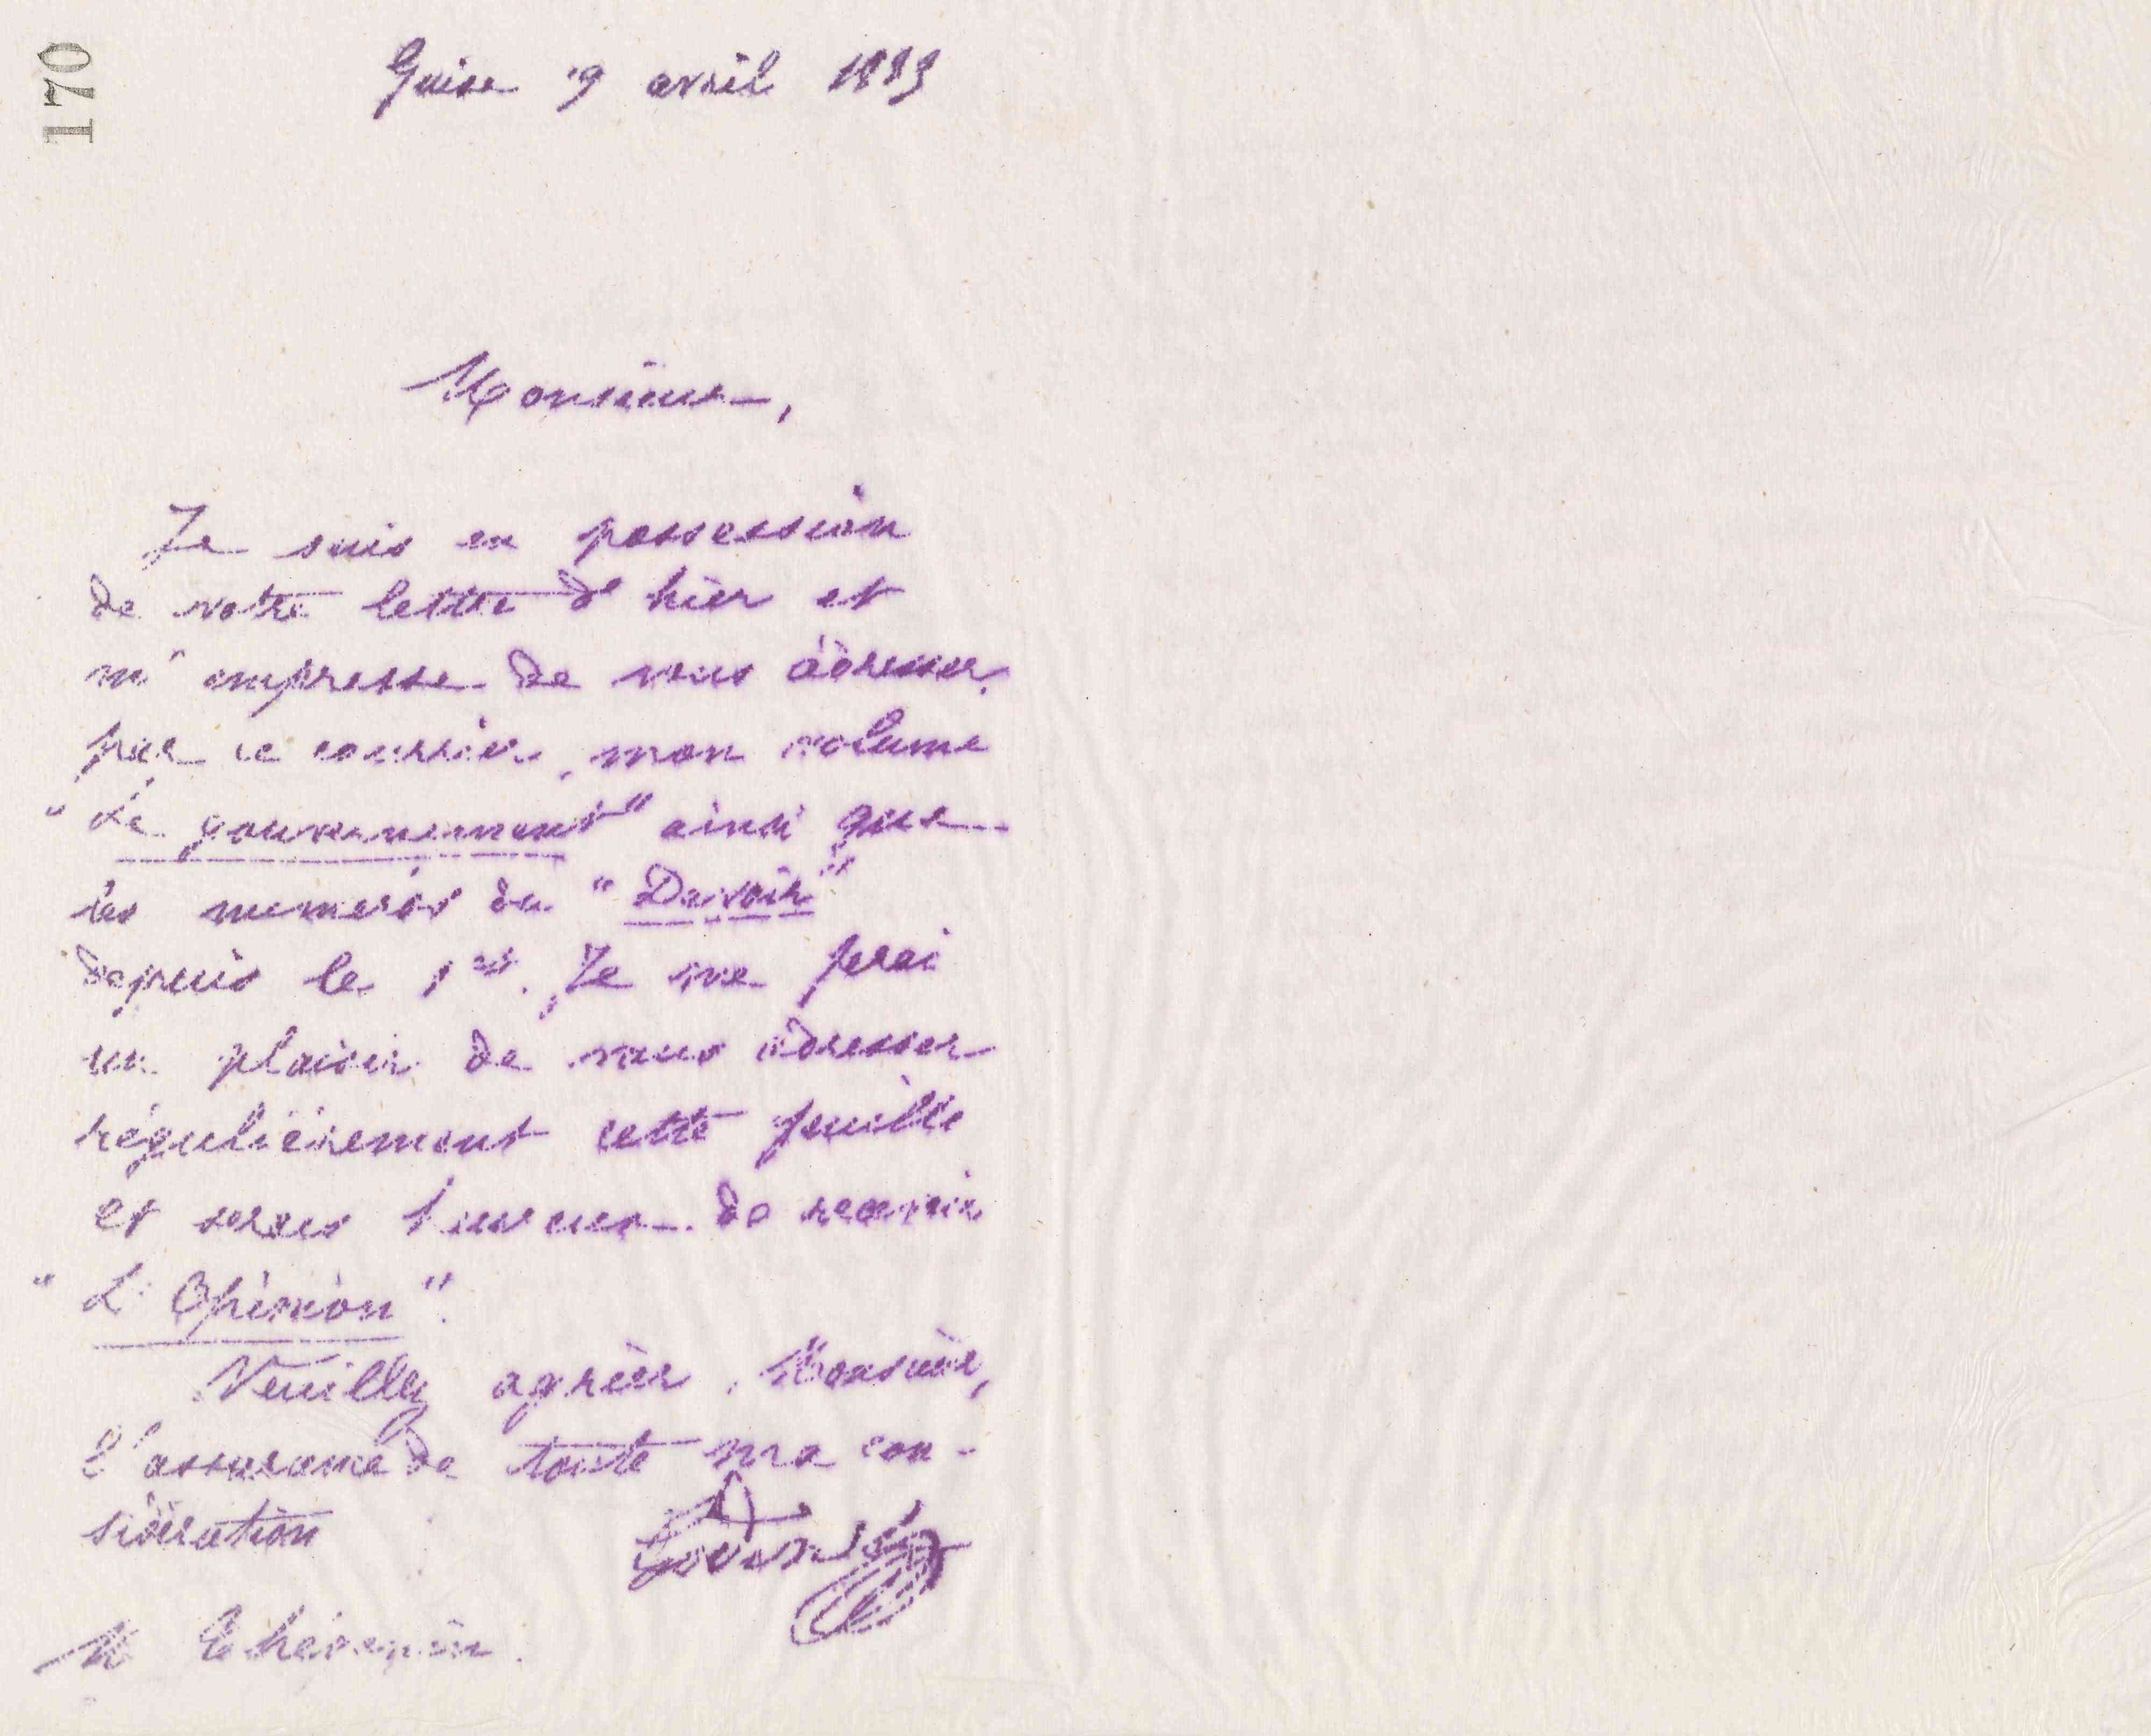 170
Guise 9 avril 1883
Monsieur,
Je suis en possession
de votre lettre d'hier et
m'empresse de vous adresser,
par ce courrier, mon volume
"Le gouvernement" ainsi que
les numéros du "Devoir"
depuis le 1er. Je me ferai
un plaisir de vous adresser
régulièrement cette feuille
et serais heureux de recevoir
"L'Opinion".
Veuillez agréer, Monsieur,
l'assurance de toute ma con-
sidération
Godin
M Thévenin.